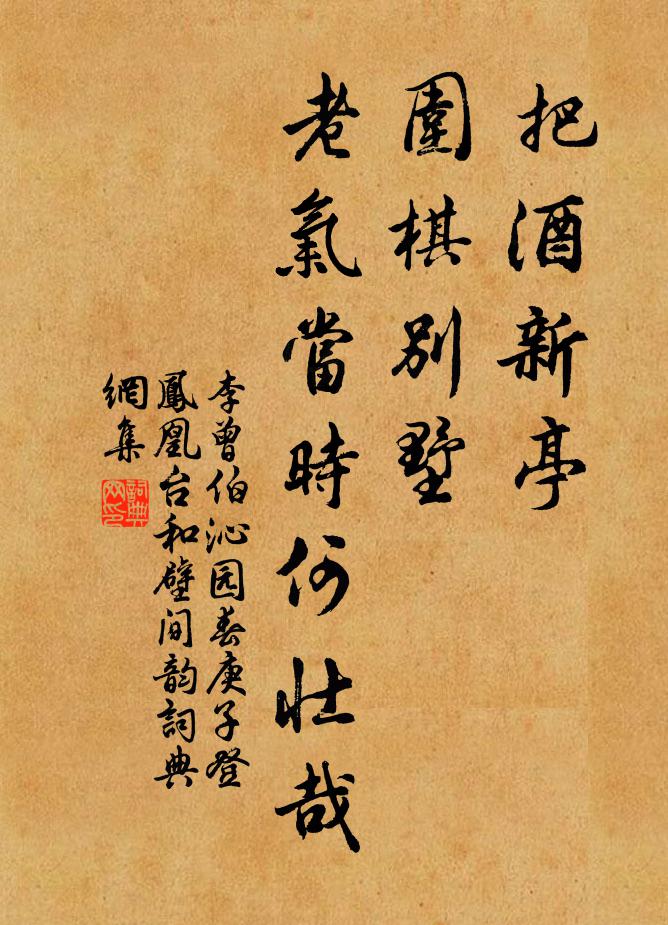 把酒新亭
圍棋別墅
老氣當時何壯哉
李曾伯沁园春庚子登
鳳凰台和壁间韵詞典
網集
詞典
网印